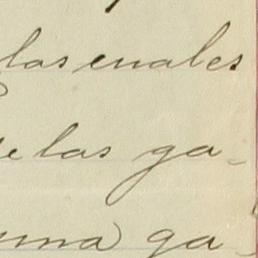 las cuales
de las ga-
una ga-